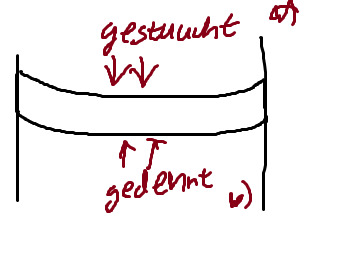 a)
gestaucht
gedehnt
b)